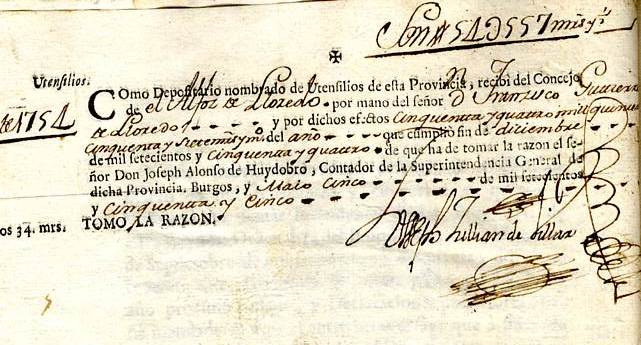 Son 54U557 mrs y
✠
Utensilios.
COmo Depositario nombrado de Utensilios de esta Provincia, recibi del Concejo
de el Alfoz de Lloredo por mano del señor D. Franzisco
de Lloredo y por dichos efectos Cinquenta y quatro mill quins
de 1754
Cinquenta y siete mrs y mo del año que cumplió fin de diciembre
de mil setecientos y Cinquenta y quattro de que ha de tomar la razon el se-
ñor Don Joseph Alonso de Huydobro, Contador de la Superintendencia General de
dicha Provincia. Burgos, y Maio Cinco de mil setecientos
y Cinquenta y Cinco
os 34. mrs. TOMO LA RAZON.
Joseph Jullian de Villar